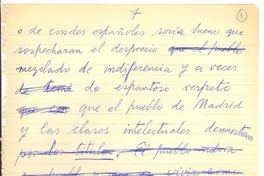 7
1
o de condes españoles sería bueno que
sospecharan el desprecio que el pueblo
mezclado de indiferencia y a veces
de espantoso respeto
que el pueblo de Madrid
y las clases intelectuales demuestran
por los títulos. El pueblo